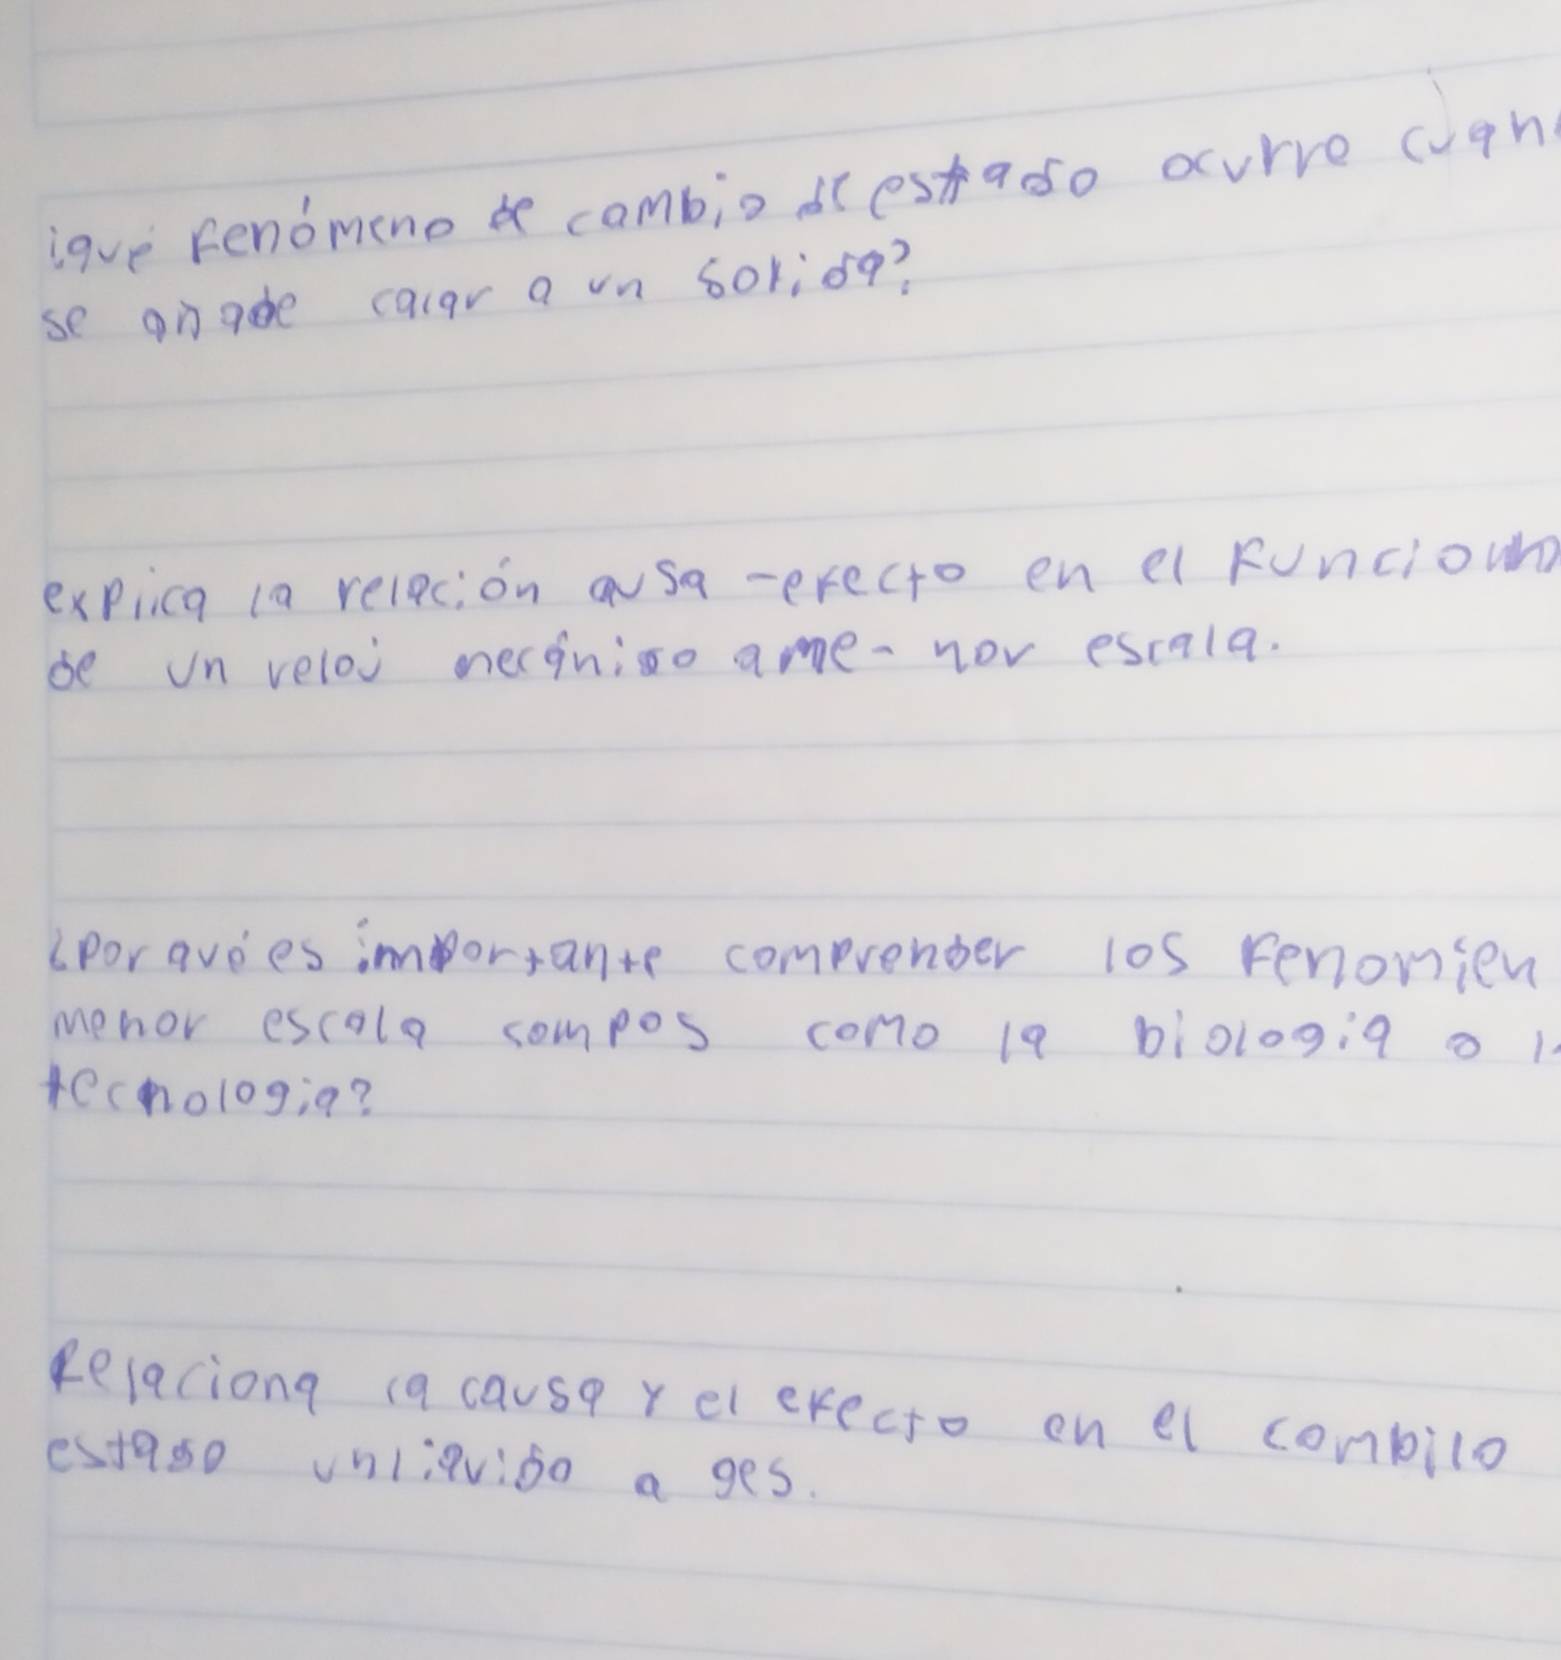 ¿que fenómeno de cambio de estado ocurre cuan
se añade calar a un solida?
explica la releción ausa -efecto en el funciona
de un reloj mecánico a me- nor escala.
¿Por qué es importante comprender los fenomien
menor escala compos como la biologia o l
tecnologia?
Relaciona la causa y el efecto en el combilo
estado unliquido a ges.